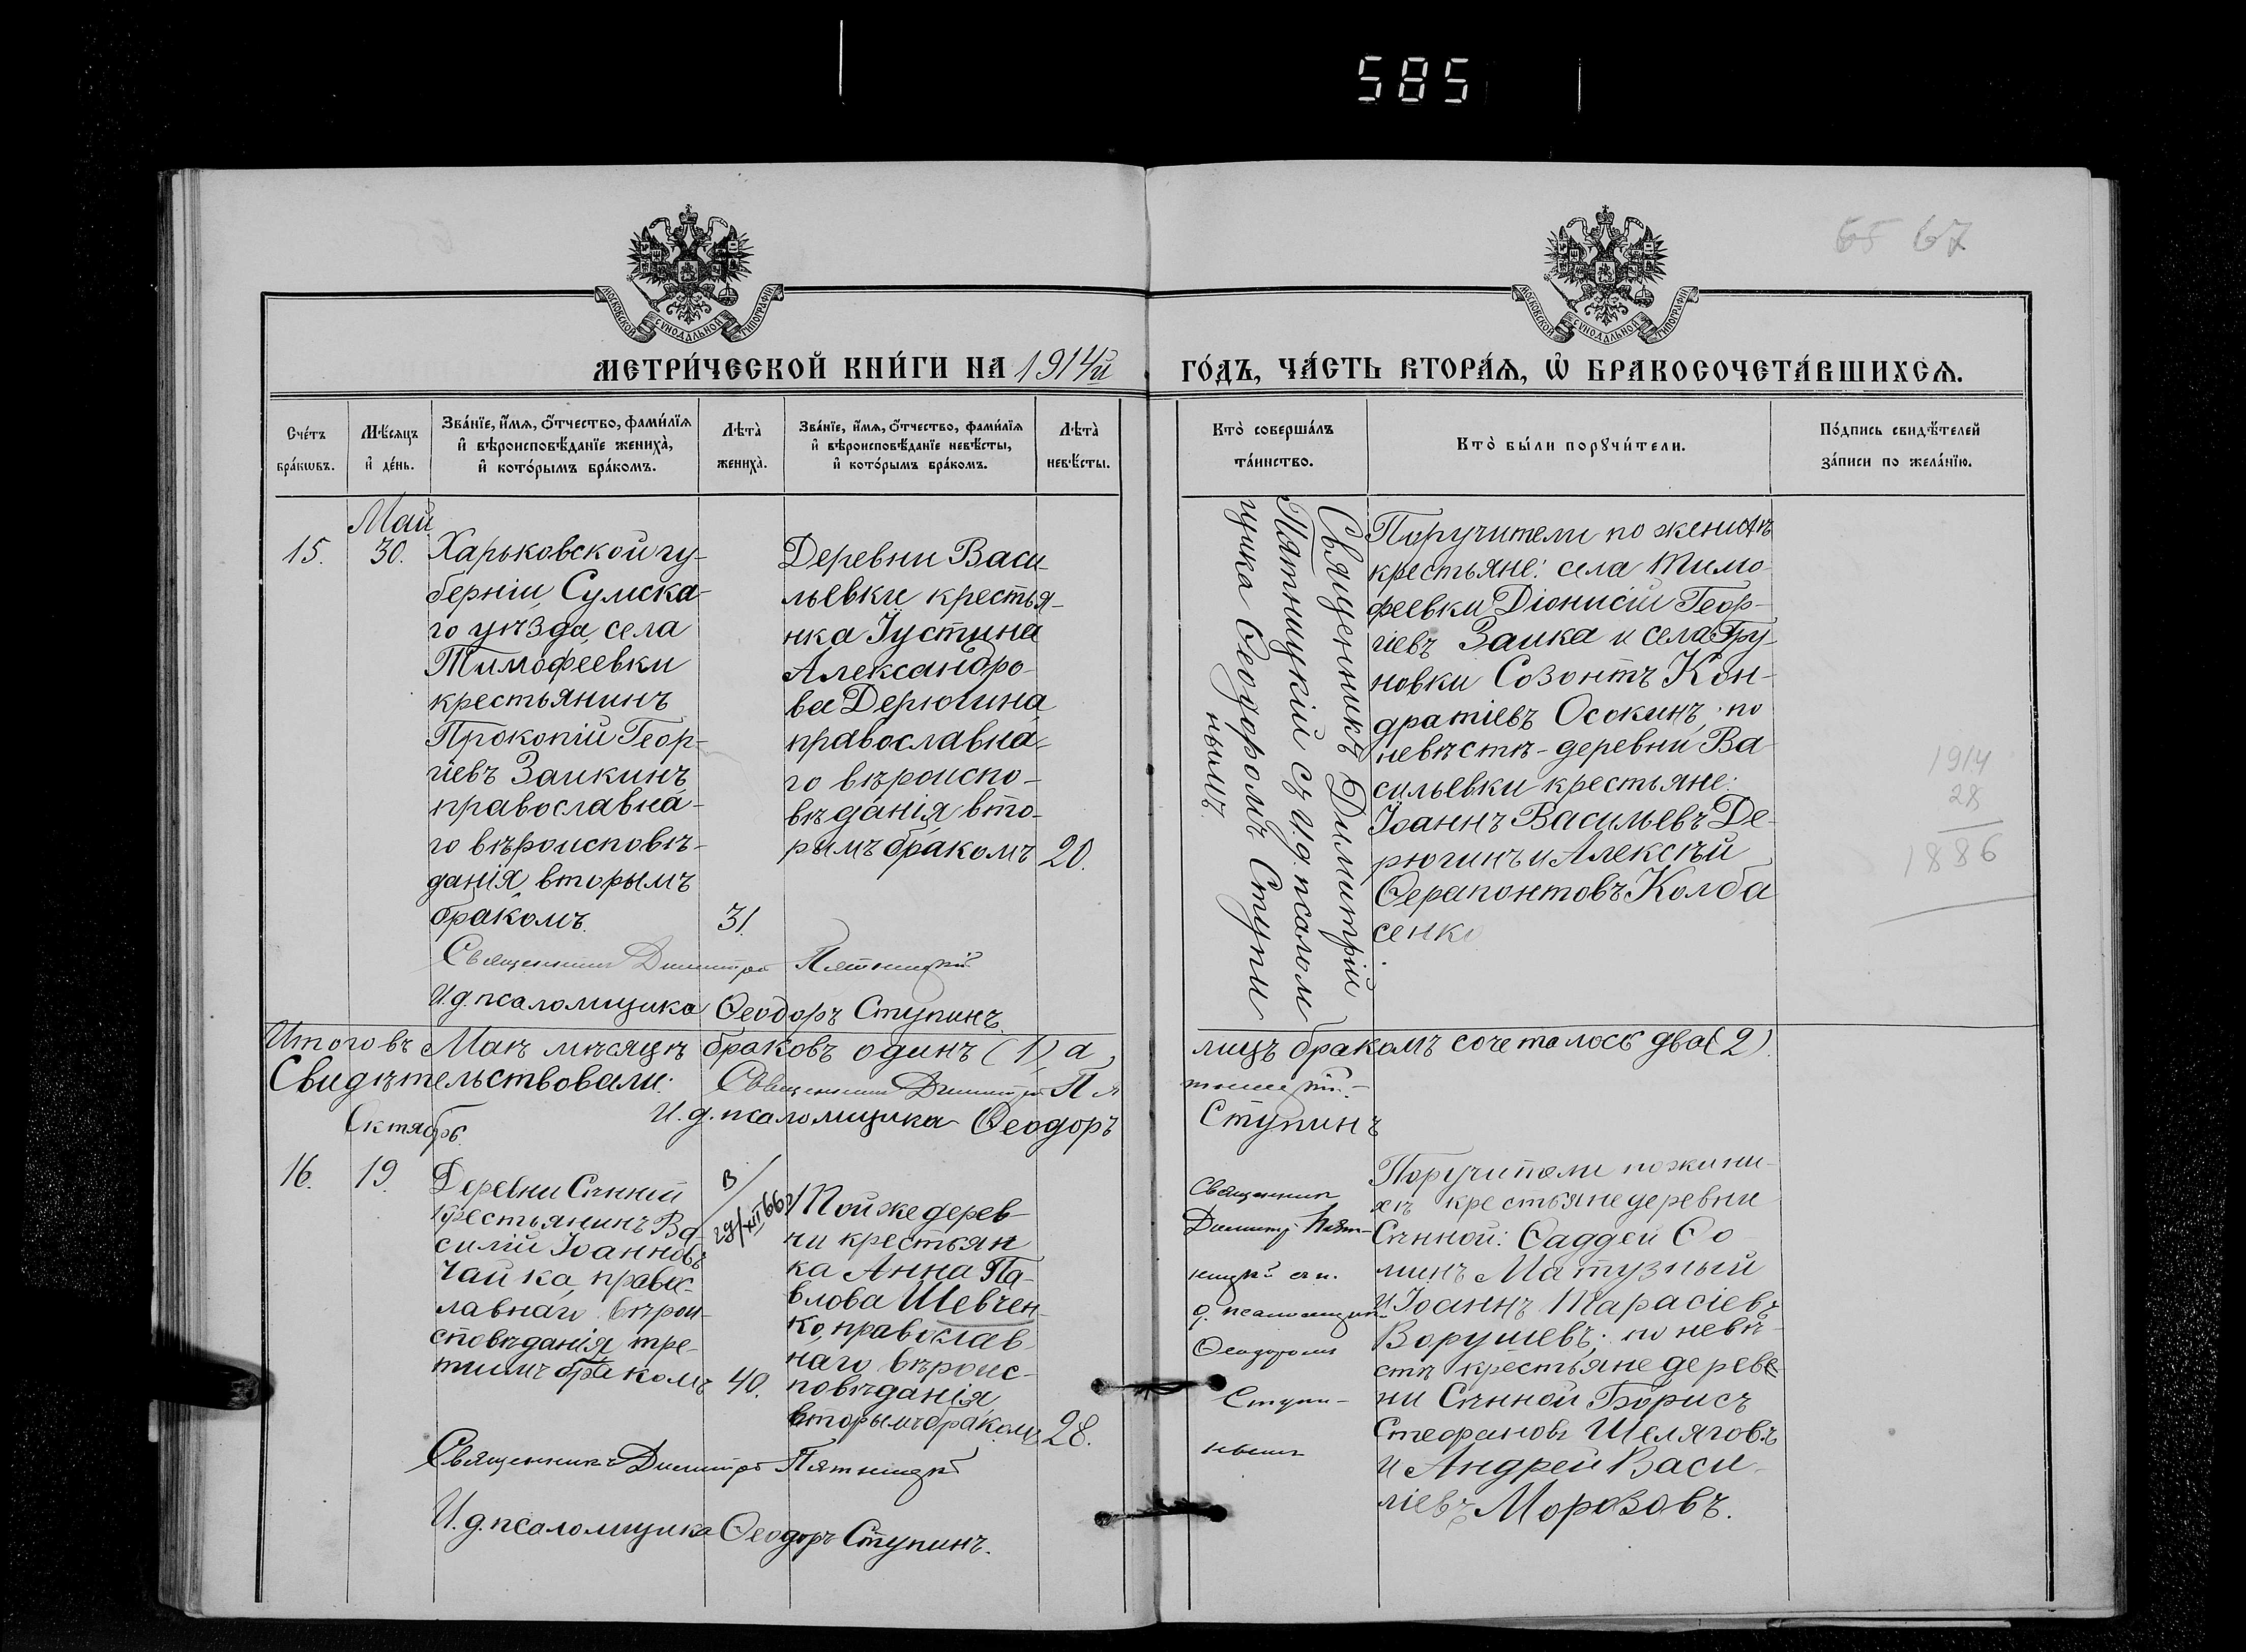 585
65 67
МОСКОВСКОЙ СѴНОДАЛЬНОЙ ТИПОГРАФІИ
МОСКОВСКОЙ СѴНОДАЛЬНОЙ ТИПОГРАФІИ
МЕТРИ́ЧЕСКОЙ КНИ́ГИ НА 1914й ГО́ДЪ, ЧА́СТЬ ВТОРА́Ѧ, Ѡ҆ БРАКОСОЧЕТА́ВШИХСѦ.
Сче́тъ
бра́кѡвъ.
Мѣ́сяцъ
и҆ де́нь.
Зва́нїе, и҆́мѧ, ѻ҆́тчество, фами́лїѧ
и҆ вѣроисповѣ́данїе жениха̀,
и҆ кото́рымъ бра́комъ.
Лѣта̀
жениха̀.
Зва́нїе, и҆́мѧ, ѻ҆́тчество, фами́лїѧ
и҆ вѣроисповѣ́данїе невѣ́сты,
и҆ кото́рымъ бра́комъ.
Лѣта̀
невѣ́сты.
Кто̀ соверша́лъ
та́инство.
Кто̀ бы́ли порꙋчи́тели.
По́дпись свидѣ́телей
за́писи по жела́нїю.
Май
15.
30.
Харьковской гу-
берніи, Сумска-
го уѣзда, села
Тимофеевки
крестьянинъ
Прокопій Геор-
гіевъ Заикинъ
православна-
го вѣроисповѣ-
данія, вторымъ
бракомъ.
31.
Деревни Васи
льевки крестья-
нка Іустина
Александро-
ва Дерюгина
православна-
го вѣроиспо-
вѣданія вто-
рымъ бракомъ
20.
Священникъ Димитрій
Пятницкій съ и.д. псалом
щика Ѳеодоромъ Ступи
нымъ.
Поручители по женихѣ
крестьяне: села Тимо
феевки Діонисій Геор-
гіевъ Заика и села Гру
новки Созонтъ Кон-
дратіевъ Осокинъ, по
невѣстѣ - деревни Ва
сильевки крестьяне:
Іоаннъ Васильевъ Де
рюгинъ и Алексѣй
Ѳерапонтовъ Колба
сенко
1914
28
1886
Священникъ Димитрій Пятницкій
И.д. псаломщика Ѳеодоръ Ступинъ.
Итого въ Маѣ мѣсяцѣ браковъ одинъ (1), а лицъ бракомъ сочеталось два (2).
Свидѣтельствовали: Священникъ Димитрій Пятницкій.
И.д. псаломщика Ѳеодоръ Ступинъ
Октябрь.
16.
19.
Деревни Сѣнной
крестьянинъ Ва
силій Іоанновъ
Чайка, правос-
лавнаго вѣрои
сповѣданія, тре-
тиимъ бракомъ
В/
29/XII 66г
40.
Той же дерев-
ни крестьян
ка Анна Па-
влова Шевчен
ко, православ
наго вѣроис-
повѣданія
вторымъ бракомъ
28.
Священникъ
Димитр. Пят-
ницкій съ и.
д. псаломщика
Ѳеодоромъ
Ступи-
нымъ
Поручители по жени-
хѣ крестьяне деревни
Сѣнной: Ѳаддей Ѳо
минъ Матузный
и Іоаннъ Тарасіевъ
Ворушевъ; по невѣ
стѣ крестьяне дерев
ни Сѣнной Борисъ
Стефановъ Шеляговъ
и Андрей Васи
ліевъ Морозовъ.
Священникъ Димитрій Пятницкій
И.д. псаломщика Ѳеодоръ Ступинъ.